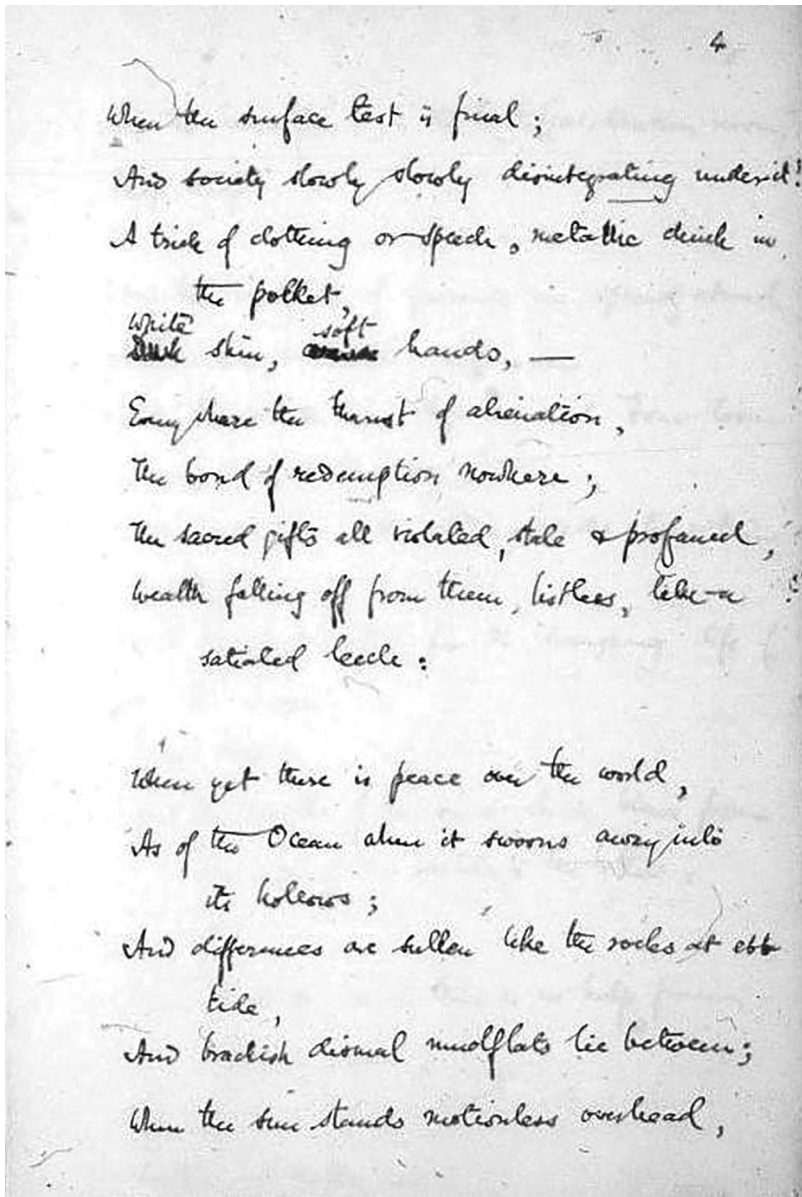 4
When the surface test is final;
And society slowly slowly disintegrating under it!
A trick of clothing or speech, metallic chink in
the pocket,
White soft
skin, hands, —
Everywhere the thrust of alienation,
The bond of redemption nowhere;
The sacred gifts all violated, stale & profaned,
Wealth falling off from them, listless, like a
satiated leech:
When yet there is peace over the world,
As of the Ocean when it swoons away into
its hollows;
And differences are sullen like the rocks at ebb
tide,
And brackish dismal mudflats lie between;
When the sun stands motionless overhead,